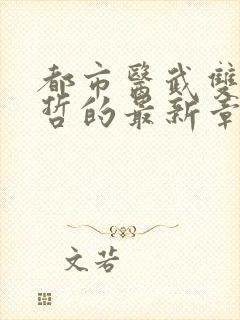 都市醫武雙
哲的最新章
文若